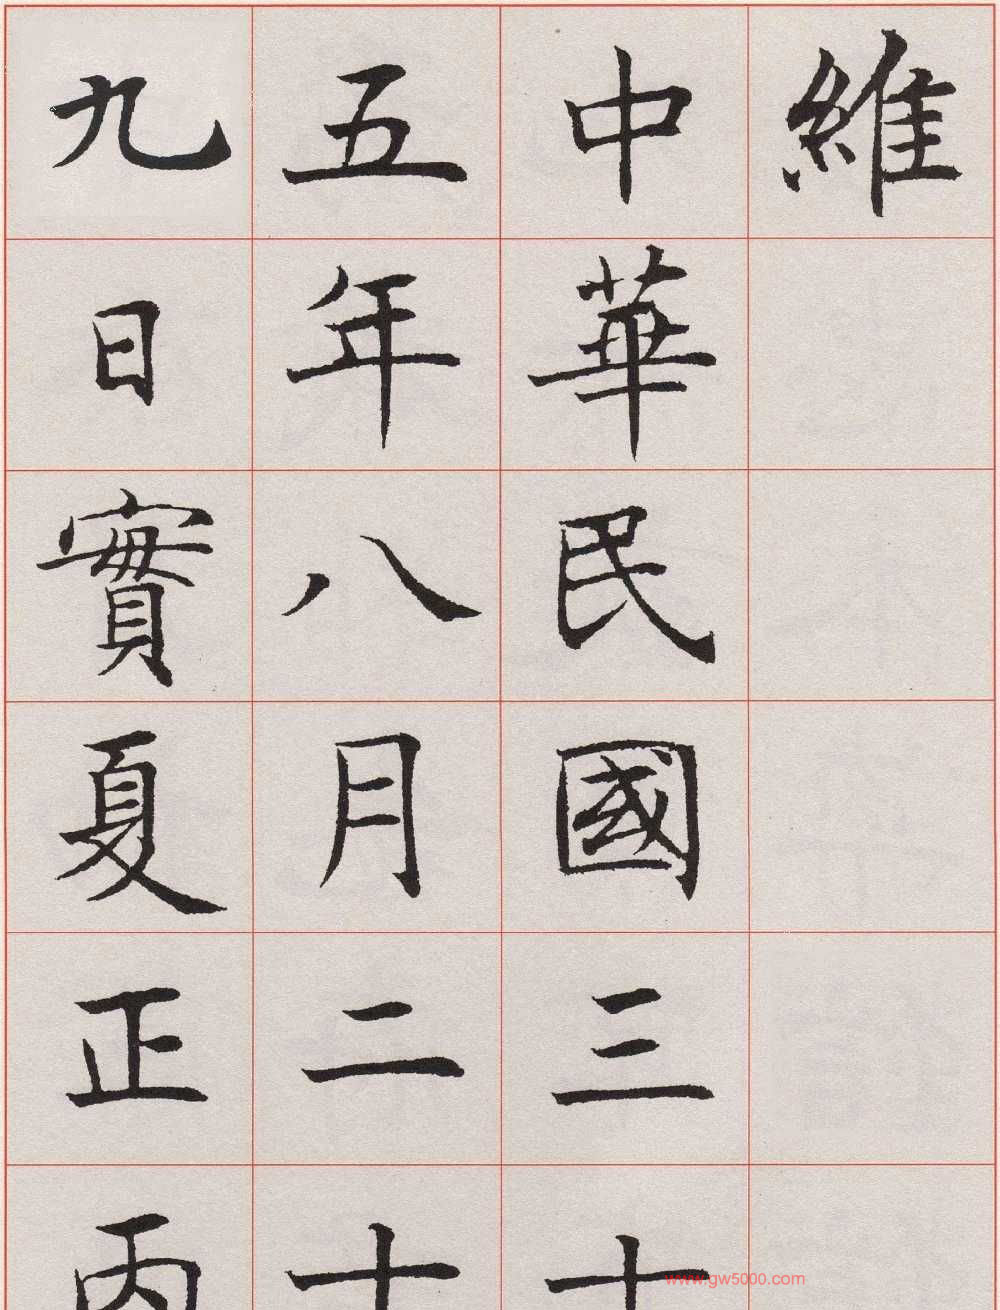 維
中華民國三十
五年八月二十
九日實夏正丙
www.gw5000.com